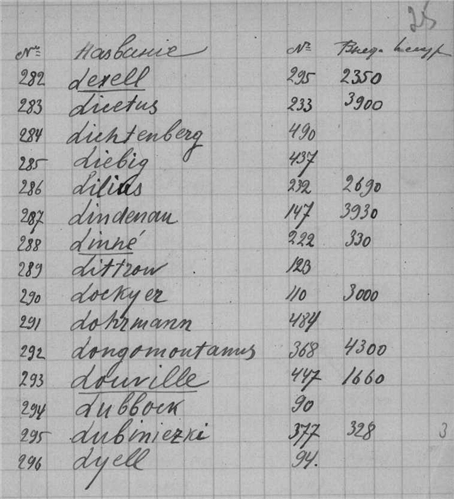 25
№ Названіе №
282 Lexell 295 2350
283 Licetus 233 3900
284 Lichtenberg 490
285 Liebig 437
286 Lilius 232 2690
287 Lindenau 147 3930
288 Linné 222 330
289 Littrow 123
290 Lockyer 110 3000
291 Lohrmann 484
292 Longomontanus 368 4300
293 Louville 447 1660
294 Lubbock 90
295 Lubiniezki 377 328 3
296 Lyell 94.